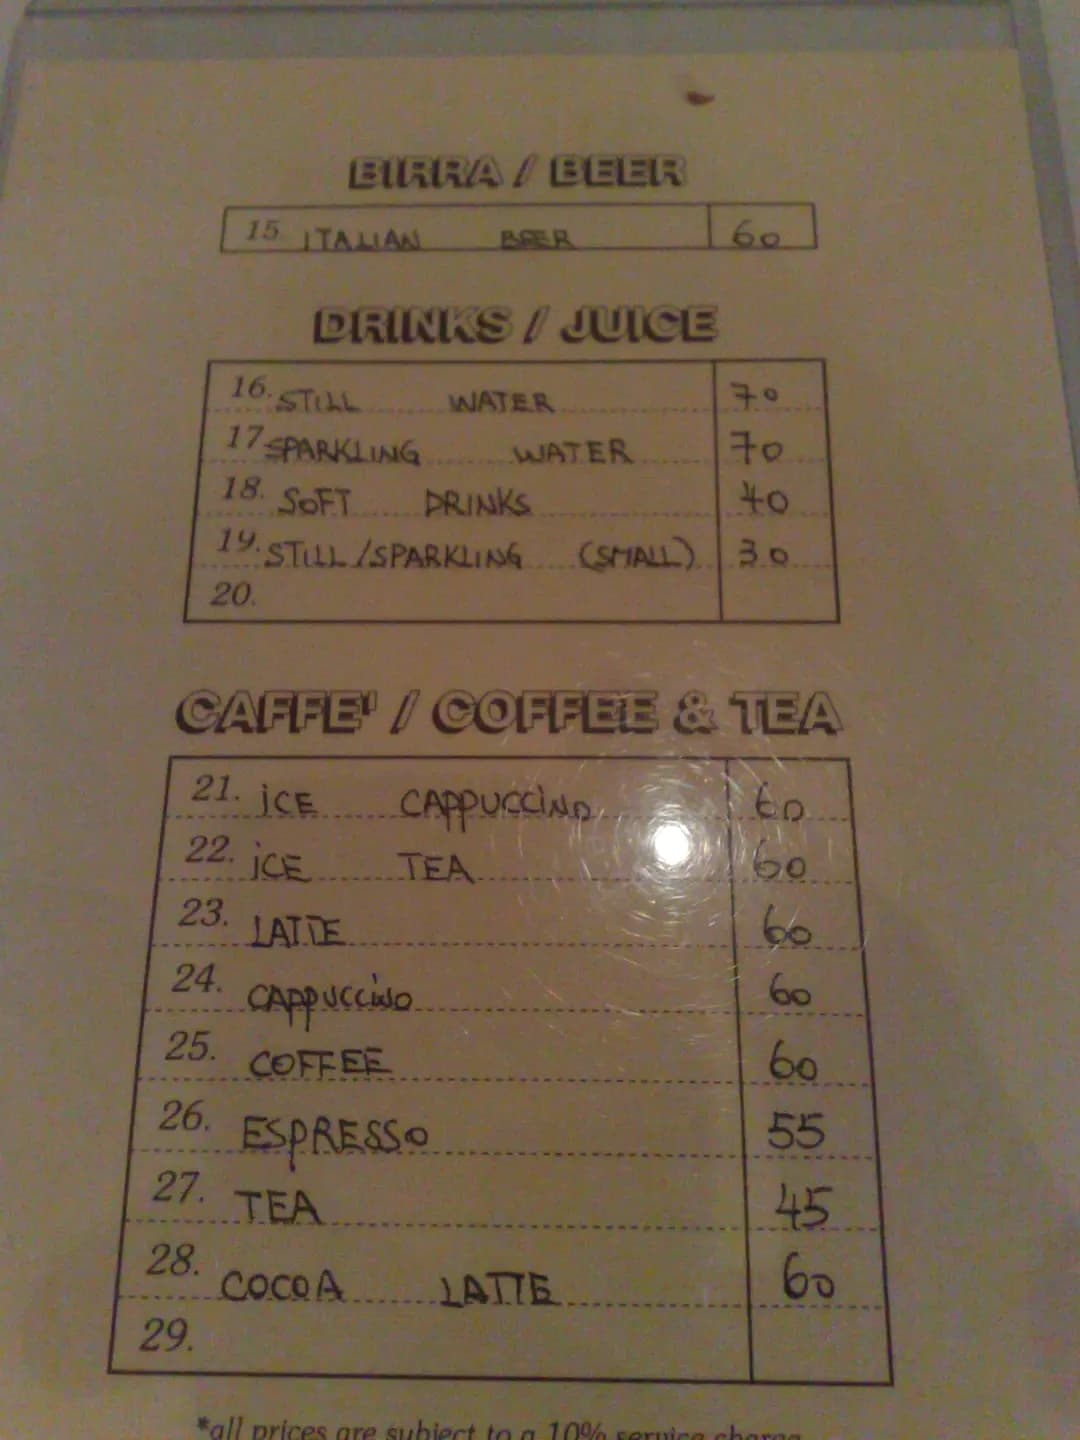 BIRRA / BEER
15. ITALIAN BEER 60
DRINKS / JUICE
16. STILL WATER 70
17. SPARKLING WATER 70
18. SOFT DRINKS 40
19. STILL/SPARKLING (SMALL) 30
20.
CAFFE' / COFFEE & TEA
21. ICE CAPPUCCINO 60
22. ICE TEA 60
23. LATTE 60
24. CAPPUCCINO 60
25. COFFEE 60
26. ESPRESSO 55
27. TEA 45
28. COCOA LATTE 60
29.
*all prices are subject to a 10% service charge